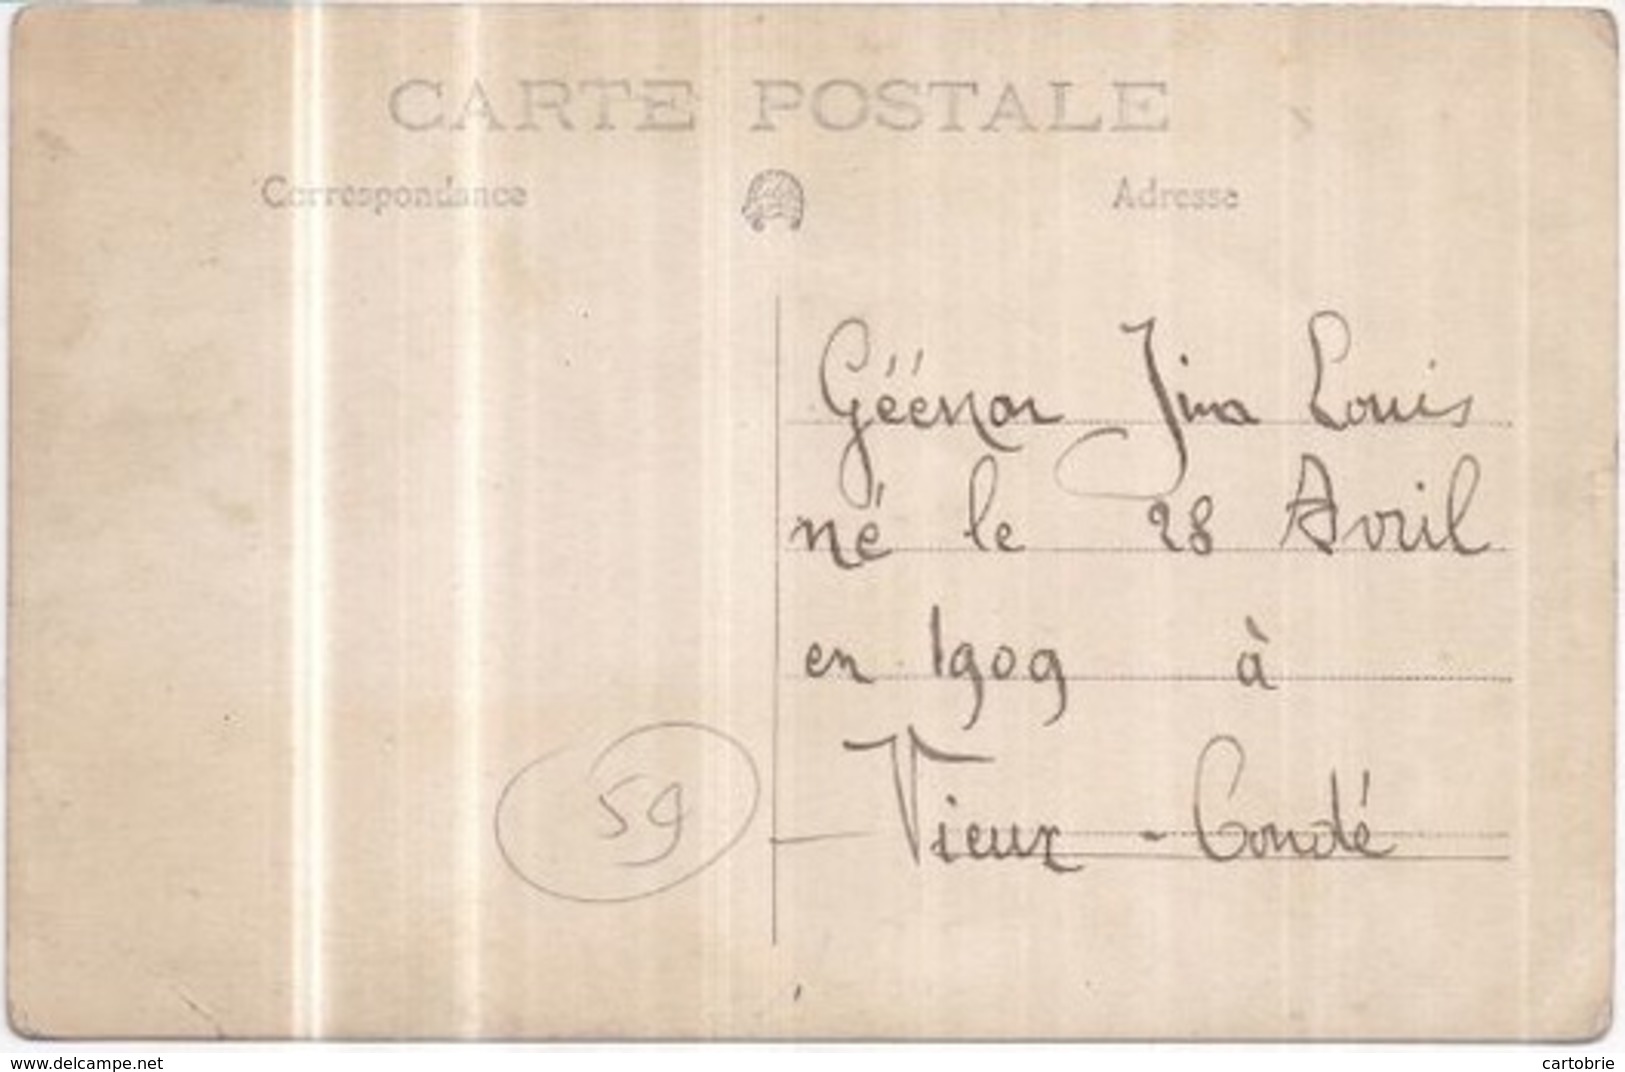 CARTE POSTALE
Correspondance
Adresse
Louis
né le 28 Avril
en 1909 à
Vieux - Condé
59
www.delcampe.net
cartobrie